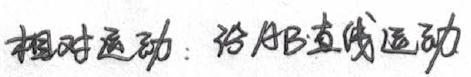 相对运动：沿AB直线运动